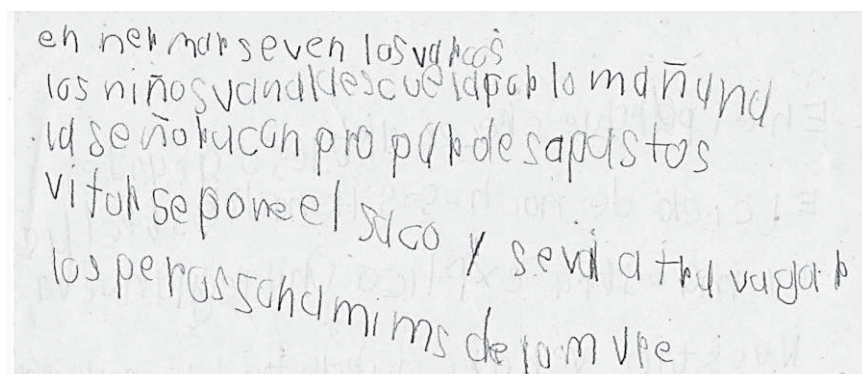 en ner mar seven losvarcos
los niños vanaldescuelapor lo mañana
la señoracon pro par de sapastos
vitor se pone el saco y seva a tra vagar
los peros sonamims de lom vre